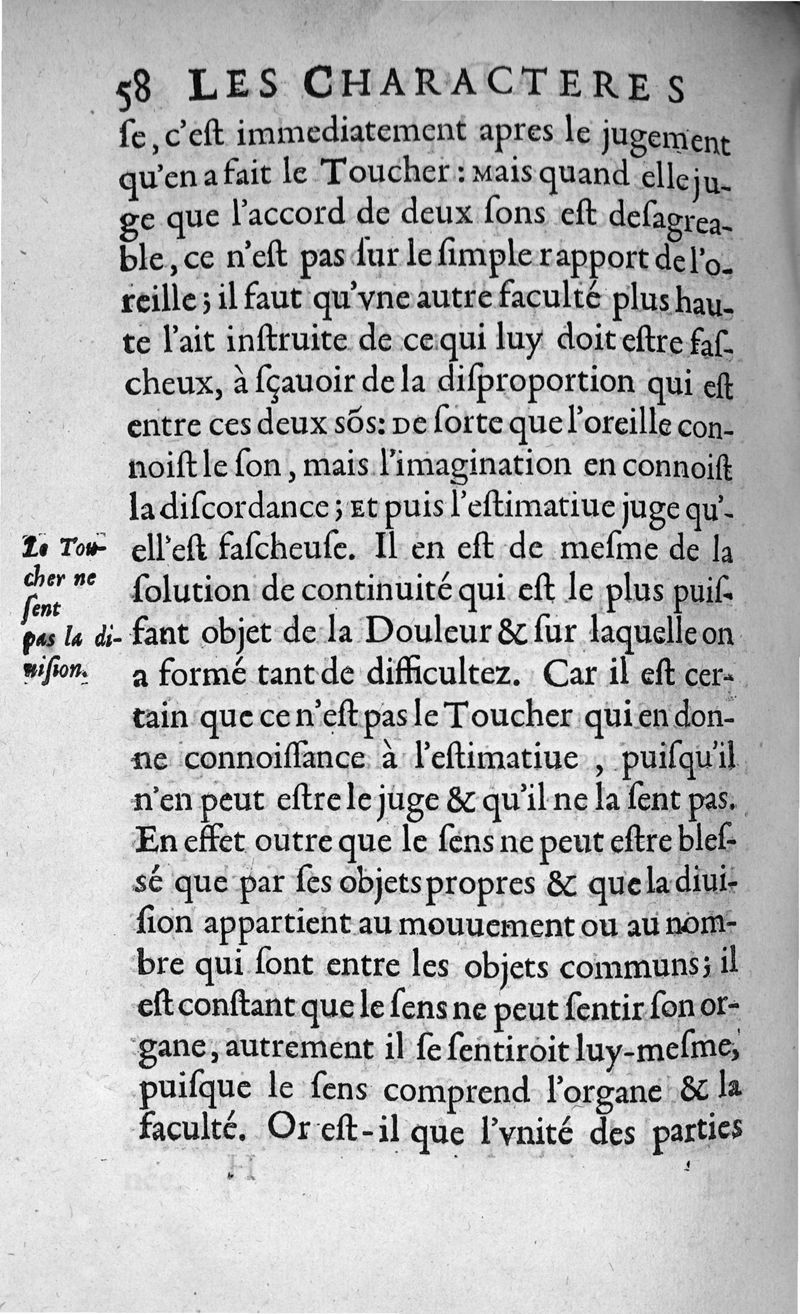 58 LES CHARACTERES
ſe, c'eſt immediatement apres le jugement
qu'en a fait le Toucher : Mais quand elle ju-
ge que l'accord de deux ſons eſt deſagrea-
ble, ce n'eſt pas ſur le ſimple rapport de l'o-
reille; il faut qu'vne autre faculté plus hau-
te l'ait inſtruite de ce qui luy doit eſtre faſ-
cheux, à ſçauoir de la diſproportion qui eſt
entre ces deux sõs: De ſorte que l'oreille con-
noiſt le ſon, mais l'imagination en connoiſt
la diſcordance; Et puis l'eſtimatiue juge qu'-
ell'eſt faſcheuſe. Il en eſt de meſme de la
ſolution de continuité qui eſt le plus puiſ-
ſant objet de la Douleur & ſur laquelle on
a formé tant de difficultez. Car il eſt cer-
tain que ce n'eſt pas le Toucher qui en don-
ne connoiſſance à l'eſtimatiue , puiſqu'il
n'en peut eſtre le juge & qu'il ne la ſent pas.
En effet outre que le ſens ne peut eſtre bleſ-
sé que par ſes objets propres & que la diui-
ſion appartient au mouuement ou au nom-
bre qui ſont entre les objets communs; il
eſt conſtant que le ſens ne peut ſentir ſon or-
gane, autrement il ſe ſentiroit luy-meſme,
puiſque le ſens comprend l'organe & la
faculté. Or eſt-il que l'vnité des parties
Le Tou-
cher ne
ſent
pas la di-
uiſion.